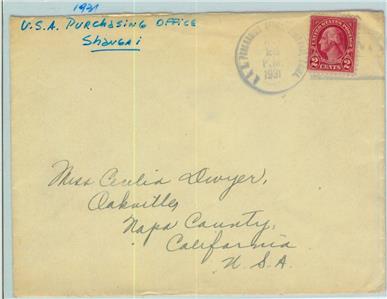 1931
U.S.A. PURCHASING OFFICE
SHANGAI
P.M.
1931
UNITED STATES POSTAGE
2 CENTS 2
Miss Cecilia Dwyer,
Oakville,
Napa County,
California
U.S.A.